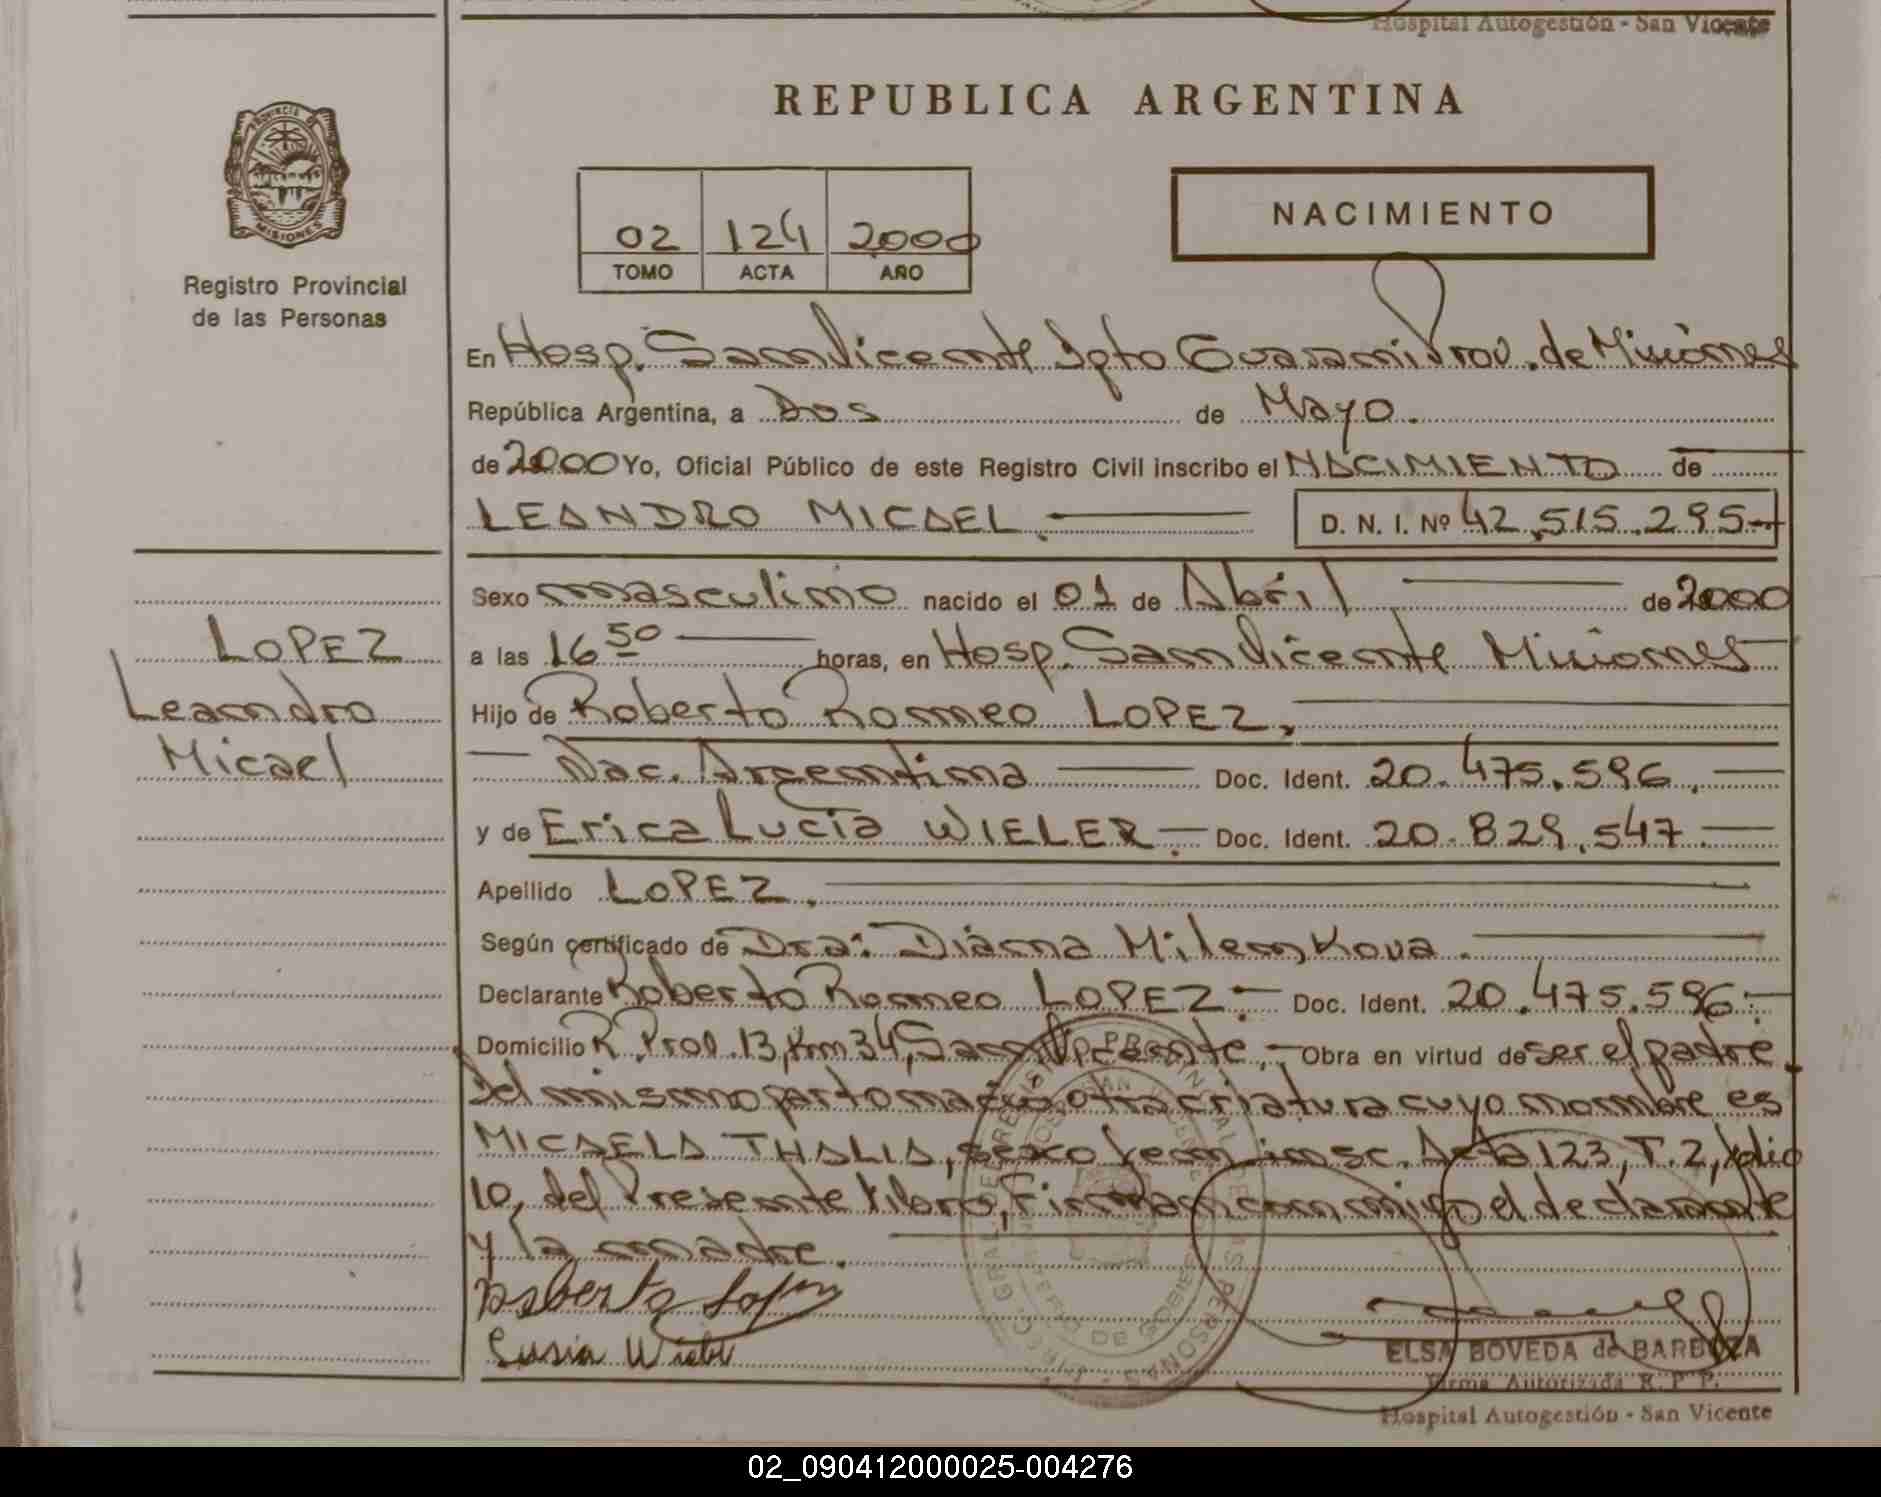 Hospital Autogestión - San Vicente
REPUBLICA ARGENTINA
PROVINCIA D
MISIONES
Registro Provincial
de las Personas
02 124 2000
TOMO ACTA AÑO
NACIMIENTO
En Hosp. San Vicente Dpto Guarani Prov. de Misiones
República Argentina, a Dos de Mayo.
de 2000 Yo, Oficial Público de este Registro Civil inscribo el NACIMIENTO de
LEANDRO MICAEL. D. N. I. Nº 42.515.295
Sexo masculino nacido el 01 de Abril de 2000
LOPEZ
Leandro
Micael
a las 16 50 horas, en Hosp. San Vicente Misiones
Hijo de Roberto Romeo LOPEZ,
Nac. Argentina Doc. Ident. 20.475.596.
y de Erica Lucia WIELER. Doc. Ident. 20.829.547.
Apellido LOPEZ.
Según certificado de Dra: Diana Milenkova.
Declarante Roberto Romeo LOPEZ. Doc. Ident. 20.475.596.
Domicilio R. Prov. 13, Km 34, San Vicente, Obra en virtud de ser el padre.
Del mismo parto nació otra criatura cuyo nombre es
MICAELA THALIA, sexo fem. insc. Acta 123, T. 2, folio
10, del Presente libro, Firman conmigo el declarante
y la madre.
Roberto Lopez
Lusia Wieler
ELSA BOVEDA de BARBOZA
Firma Autorizada R. P. P.
Hospital Autogestión - San Vicente
02_090412000025-004276